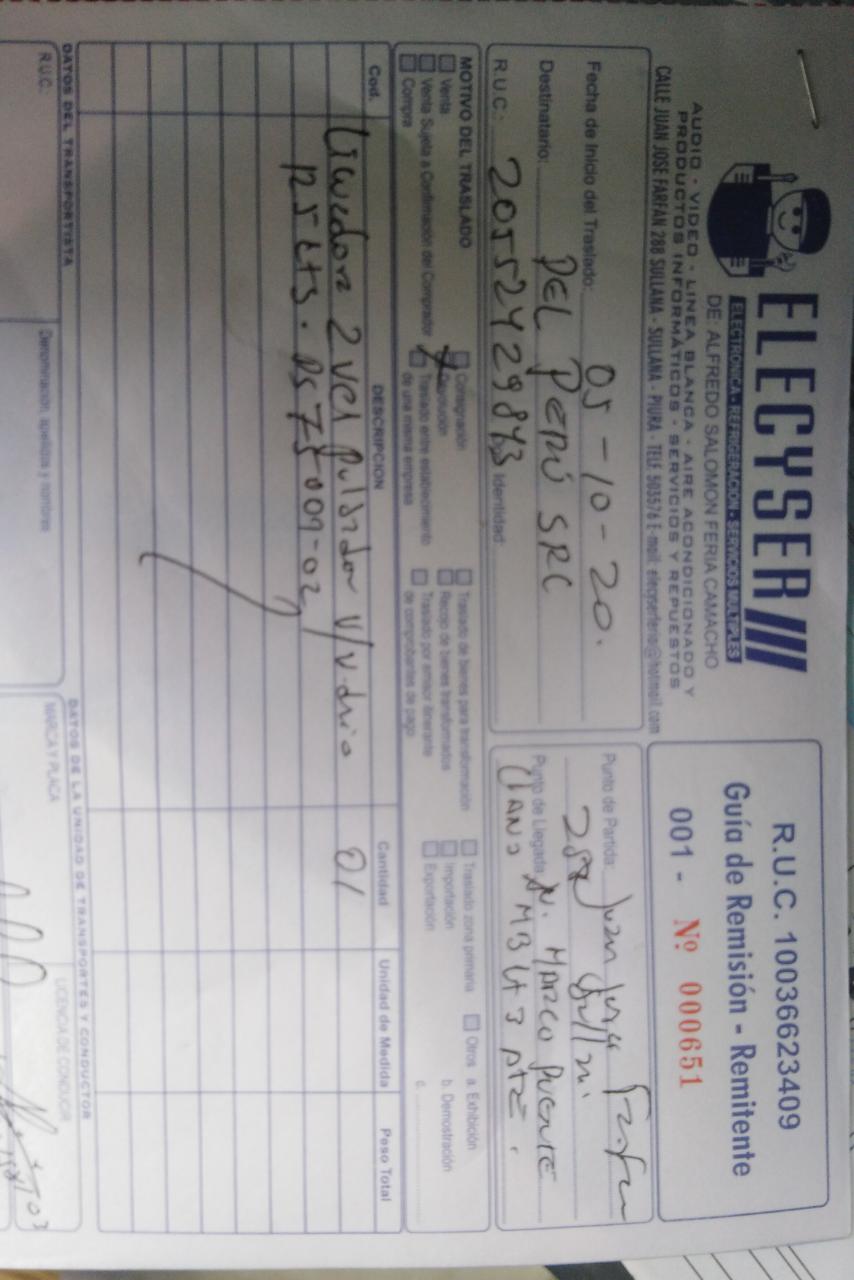 ELECYSER
ELECTRONICA - REFRIGERACION - SERVICIOS MULTIPLES
DE: ALFREDO SALOMON FERIA CAMACHO
AUDIO - VIDEO - LINEA BLANCA - AIRE ACONDICIONADO Y
PRODUCTOS INFORMÁTICOS - SERVICIOS Y REPUESTOS
CALLE JUAN JOSE FARFAN 288 SULLANA - SULLANA - PIURA - TELF. 503576 E-mail: elecyserferia@hotmail.com
R.U.C. 10036623409
Guía de Remisión - Remitente
001 - Nº 000651
Fecha de Inicio del Traslado: 05-10-20.
Destinatario: DEL PERÚ SRC
R.U.C.: 20552429843 Identidad:
Punto de Partida: Juan
288
Punto de Llegada: AV. MARCO PUENTE
LLANO MB Lt 3 ptE.
MOTIVO DEL TRASLADO
Venta
Venta Sujeta a Confirmación del Comprador
Compra
Consignación
Devolución
Traslado entre establecimiento
de una misma empresa
Traslado de bienes para transformación
Recojo de bienes transformados
Traslado por emisor itinerante
de comprobantes de pago
Traslado zona primaria
Importación
Exportación
Otros a. Exhibición
b. Demostración
c.
Cod. DESCRIPCION Cantidad Unidad de Medida Peso Total
Licuadora 2 vel pulsador V/vidrio 01
DATOS DEL TRANSPORTISTA
R.U.C.
Denominación, apellidos y nombres
DATOS DE LA UNIDAD DE TRANSPORTES Y CONDUCTOR
MARCA Y PLACA
LICENCIA DE CONDUCIR